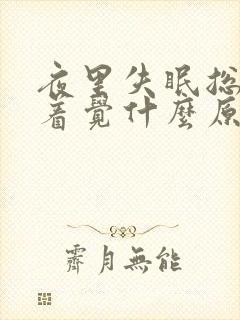 夜里失眠总
着覺什麼原
霽月無能